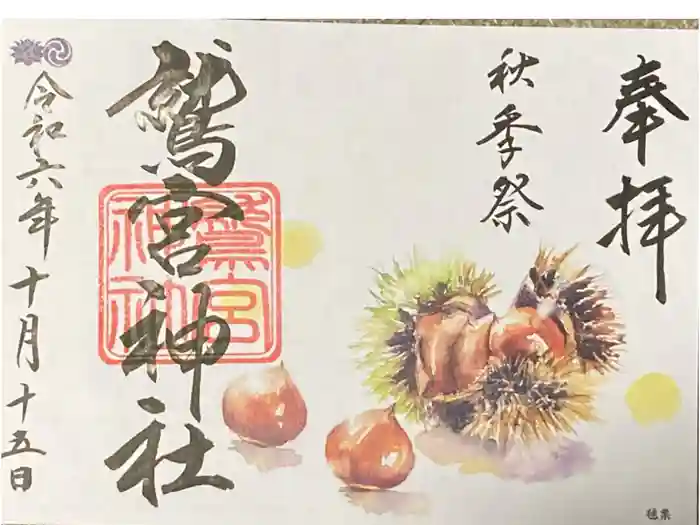 奉拝
秋季祭
鷲宮神社
鷲宮
神社
令和六年十月十五日